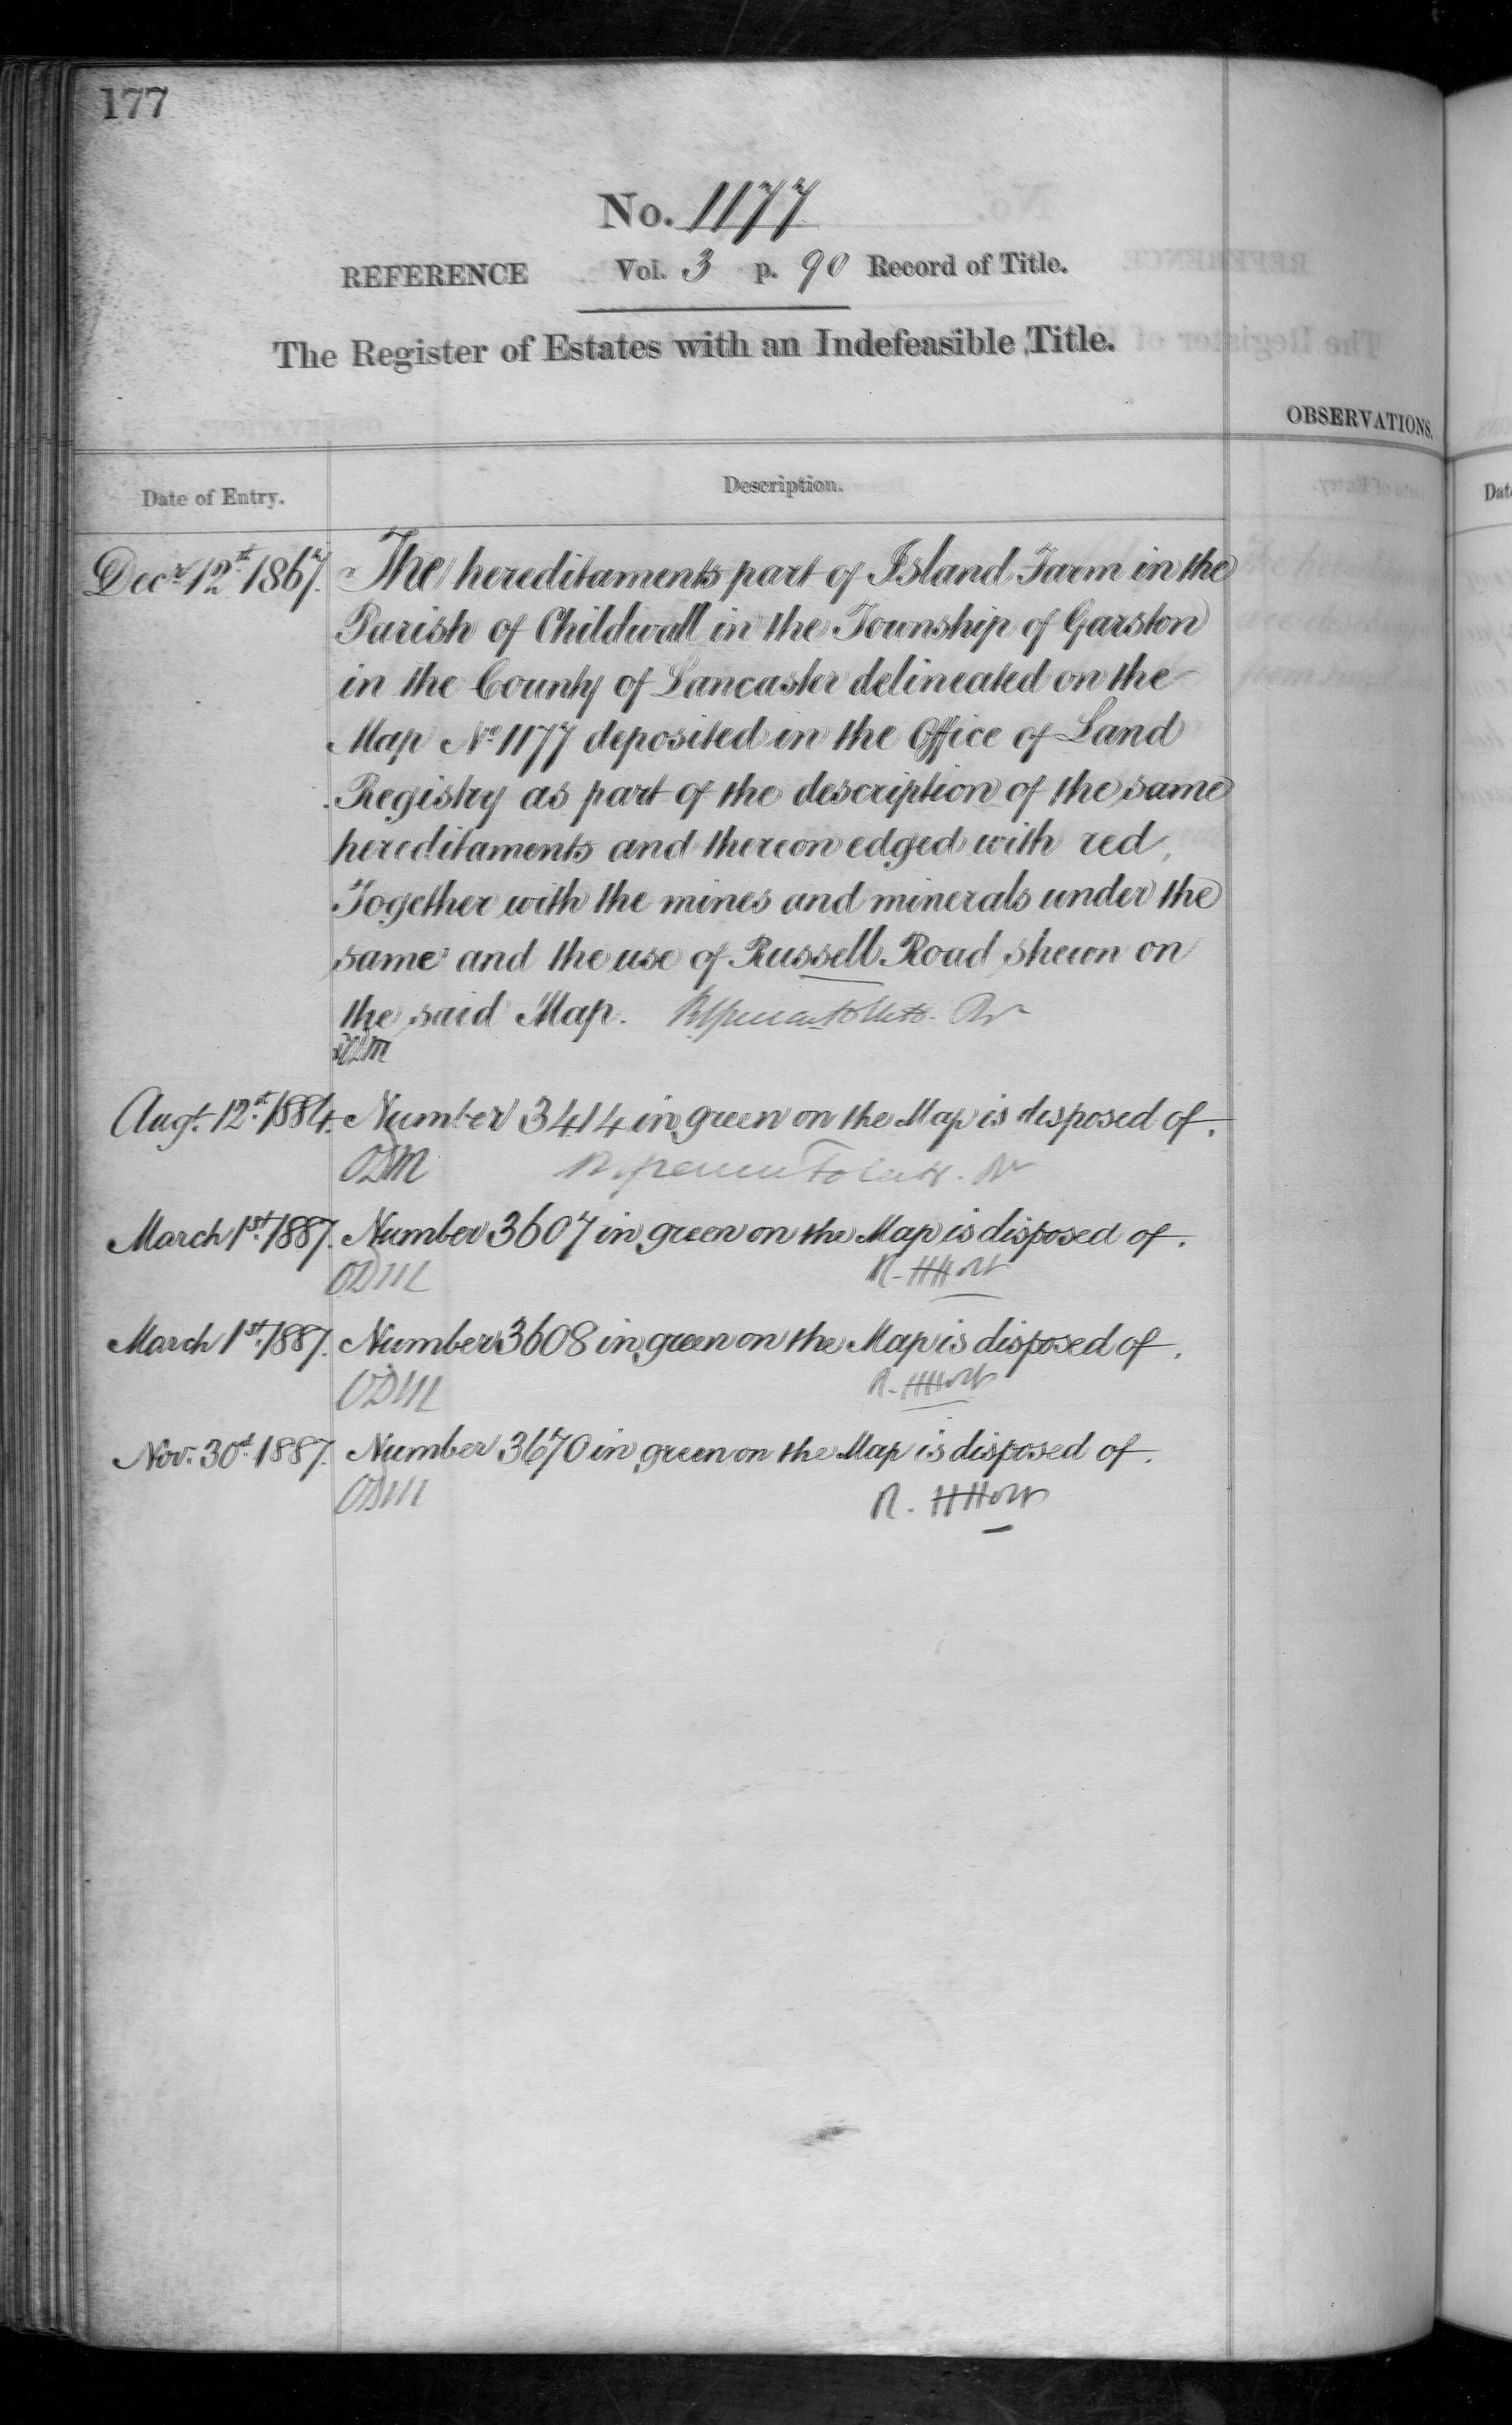 177
No. 1177
REFERENCE Vol. 3 p. 90 Record of Title.
The Register of Estates with an Indefeasible Title.
OBSERVATIONS.
Date of Entry. Description.
Decr. 12th 1867. The hereditaments part of Island Farm in the
Parish of Childwall in the Township of Garston
in the County of Lancaster delineated on the
Map No. 1177 deposited in the Office of Land
Registry as part of the description of the same
hereditaments and thereon edged with red,
Together with the mines and minerals under the
same and the use of Russell Road shewn on
the said Map.
Augt. 12th 1884. Number 3414 in green on the Map is disposed of.
ODM
March 1st. 1887. Number 3607 in green on the Map is disposed of.
ODM R. H Holt
March 1st. 1887. Number 3608 in green on the Map is disposed of.
ODM R. H Holt
Nov. 30th 1887. Number 3670 in green on the Map is disposed of.
ODM R. H Holt